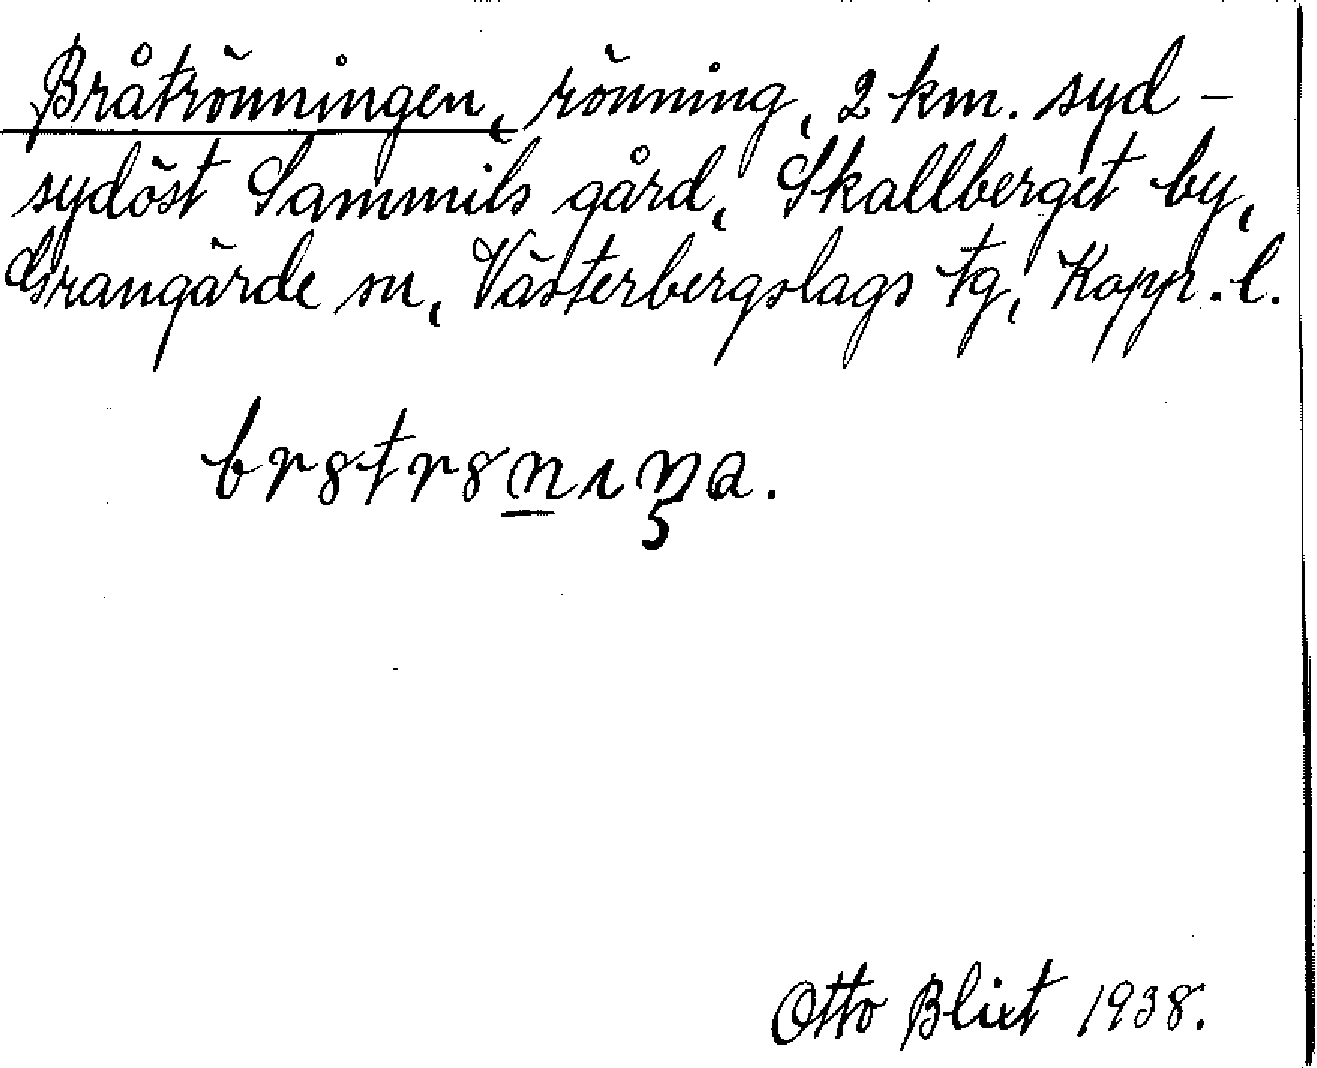 Bråtrönningen, rönning, 2 km. syd-
sydöst Sammils gård, Skallberget by,
Grangärde sn, Västerbergslags tg, Kopp. l.
Otto Blixt 1938.